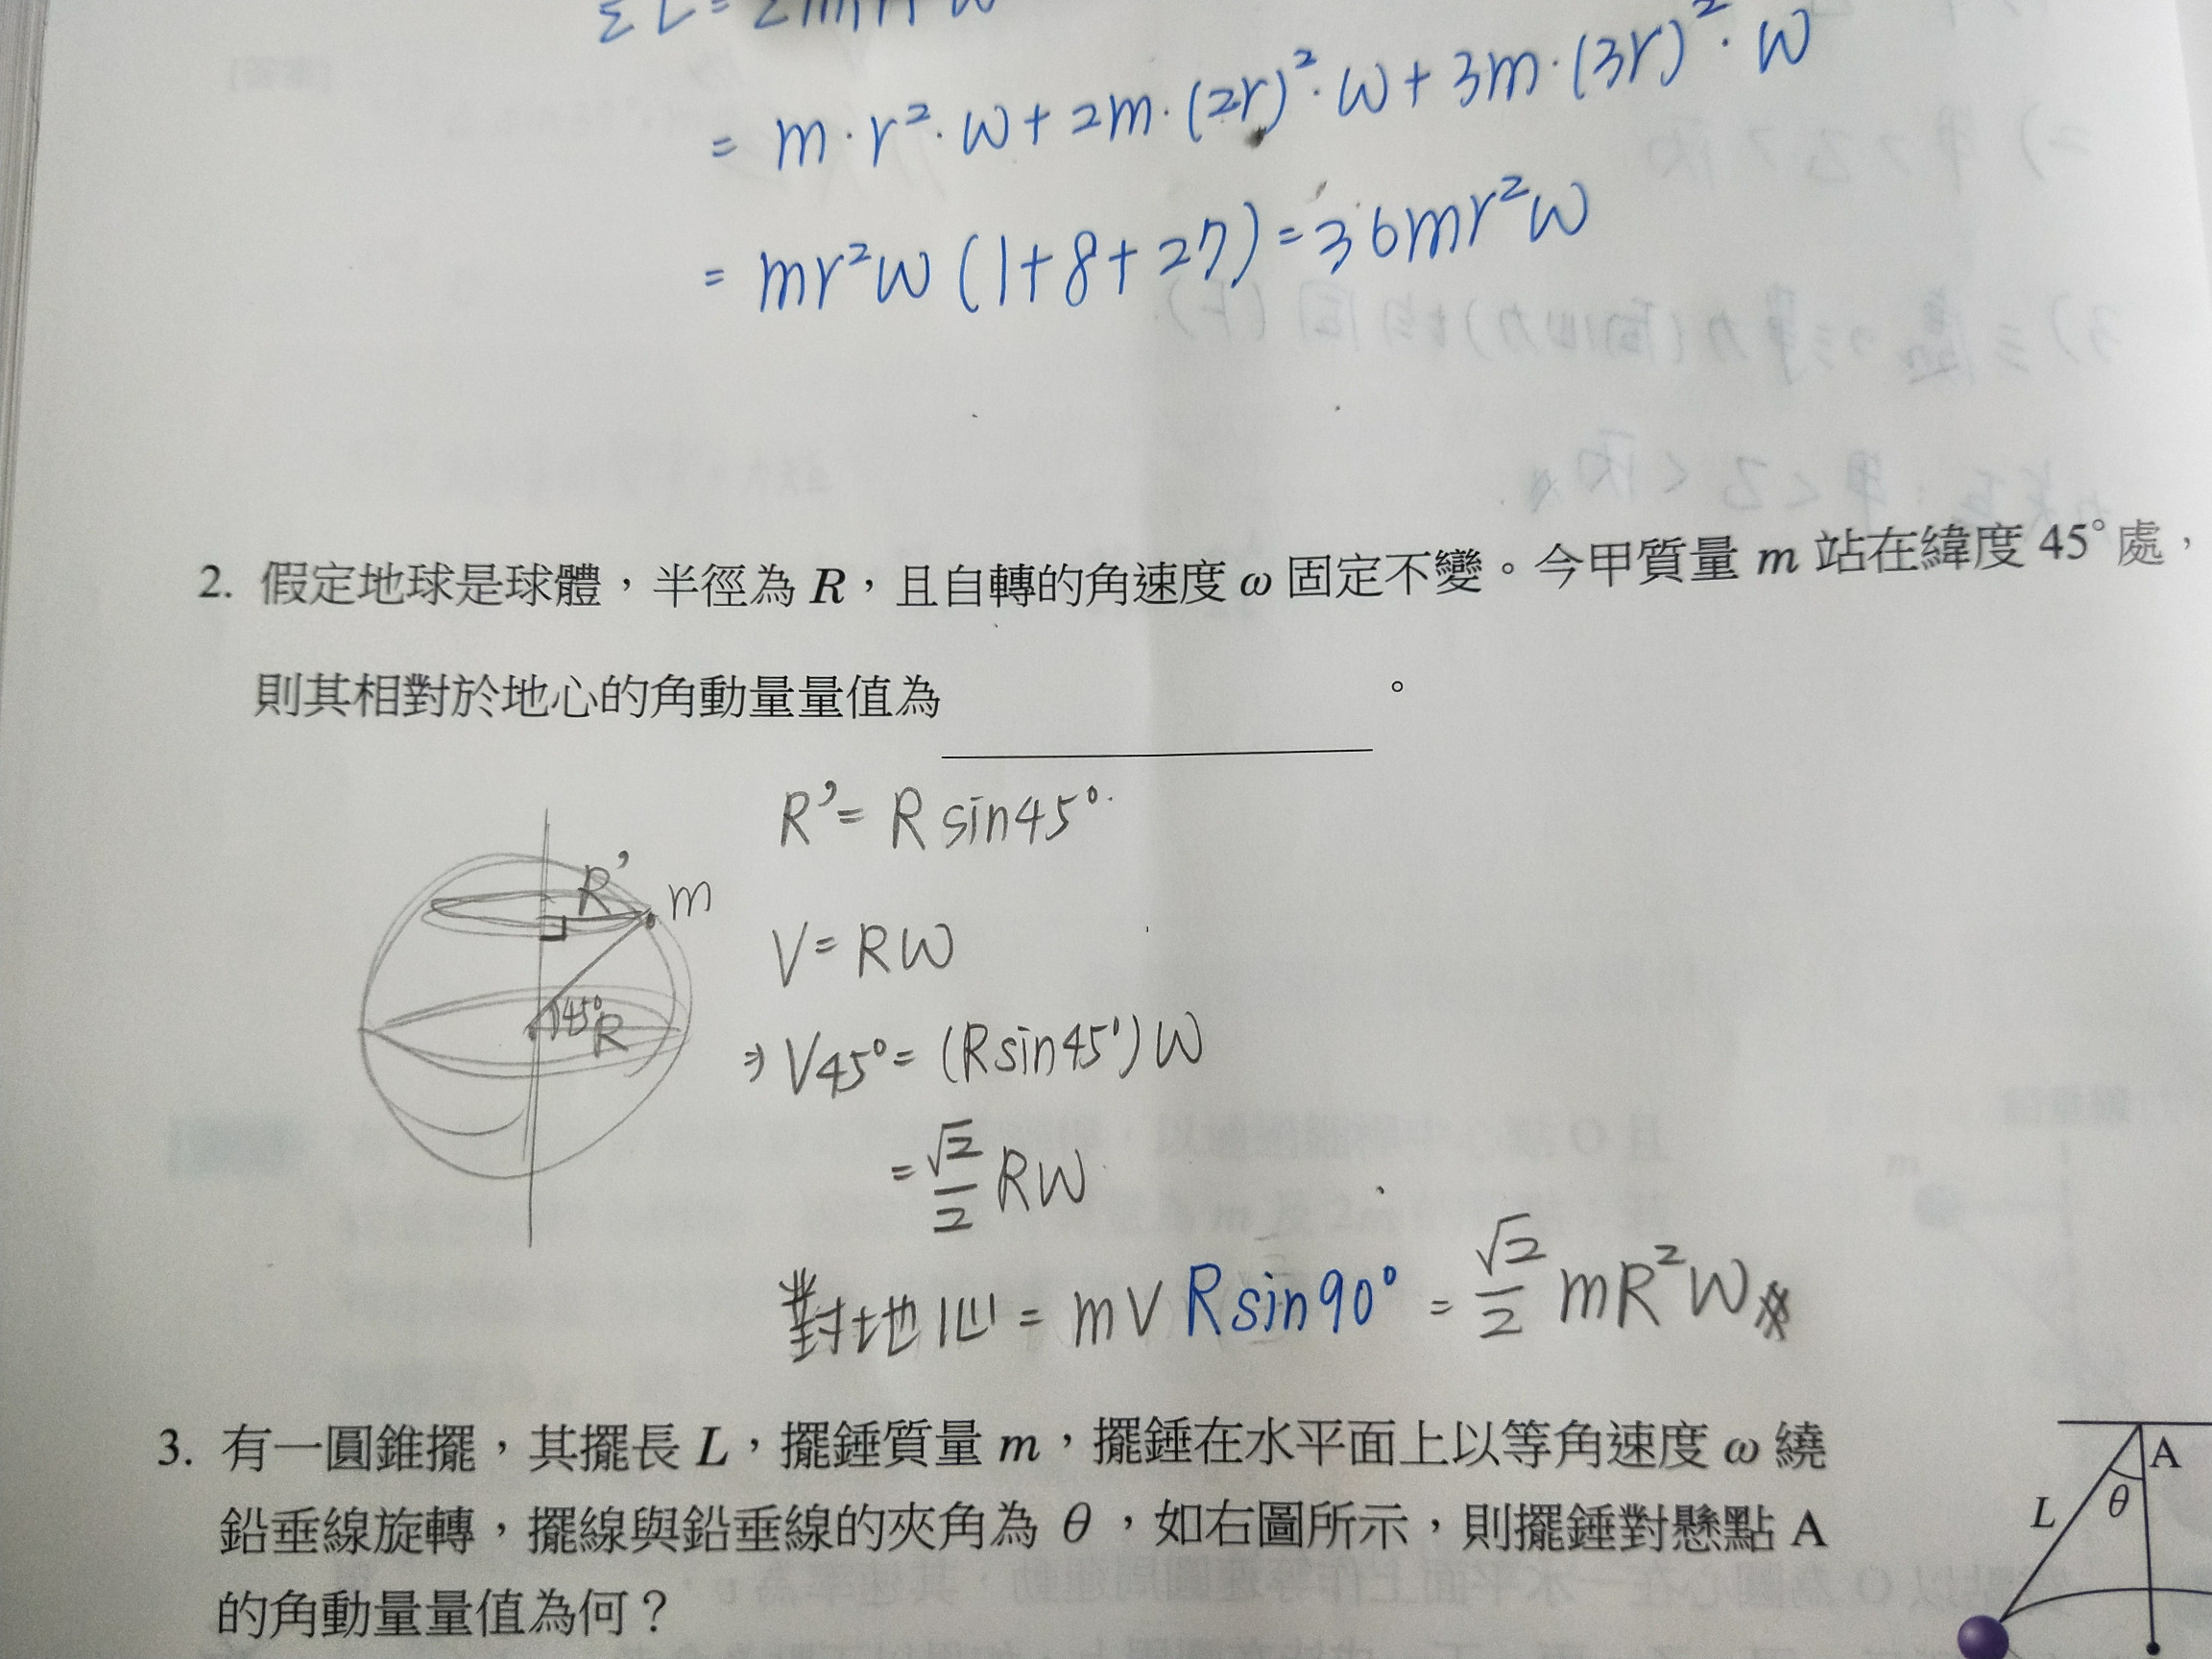 = m·r²·ω+2m·(2r)²·ω+3m·(3r)²·ω
= mr²ω(1+8+27)=36mr²ω
2. 假定地球是球體，半徑為 R，且自轉的角速度 ω 固定不變。今甲質量 m 站在緯度 45° 處，
則其相對於地心的角動量量值為 。
R'= R sin45°
R' m
V= RW
45° R
⇒ V45°= (Rsin45°)W
= √2/2 RW
對地心 = mV Rsin90° = √2/2 mR²W
3. 有一圓錐擺，其擺長 L，擺錘質量 m，擺錘在水平面上以等角速度 ω 繞
鉛垂線旋轉，擺線與鉛垂線的夾角為 θ，如右圖所示，則擺錘對懸點 A
的角動量量值為何？
A
θ
L